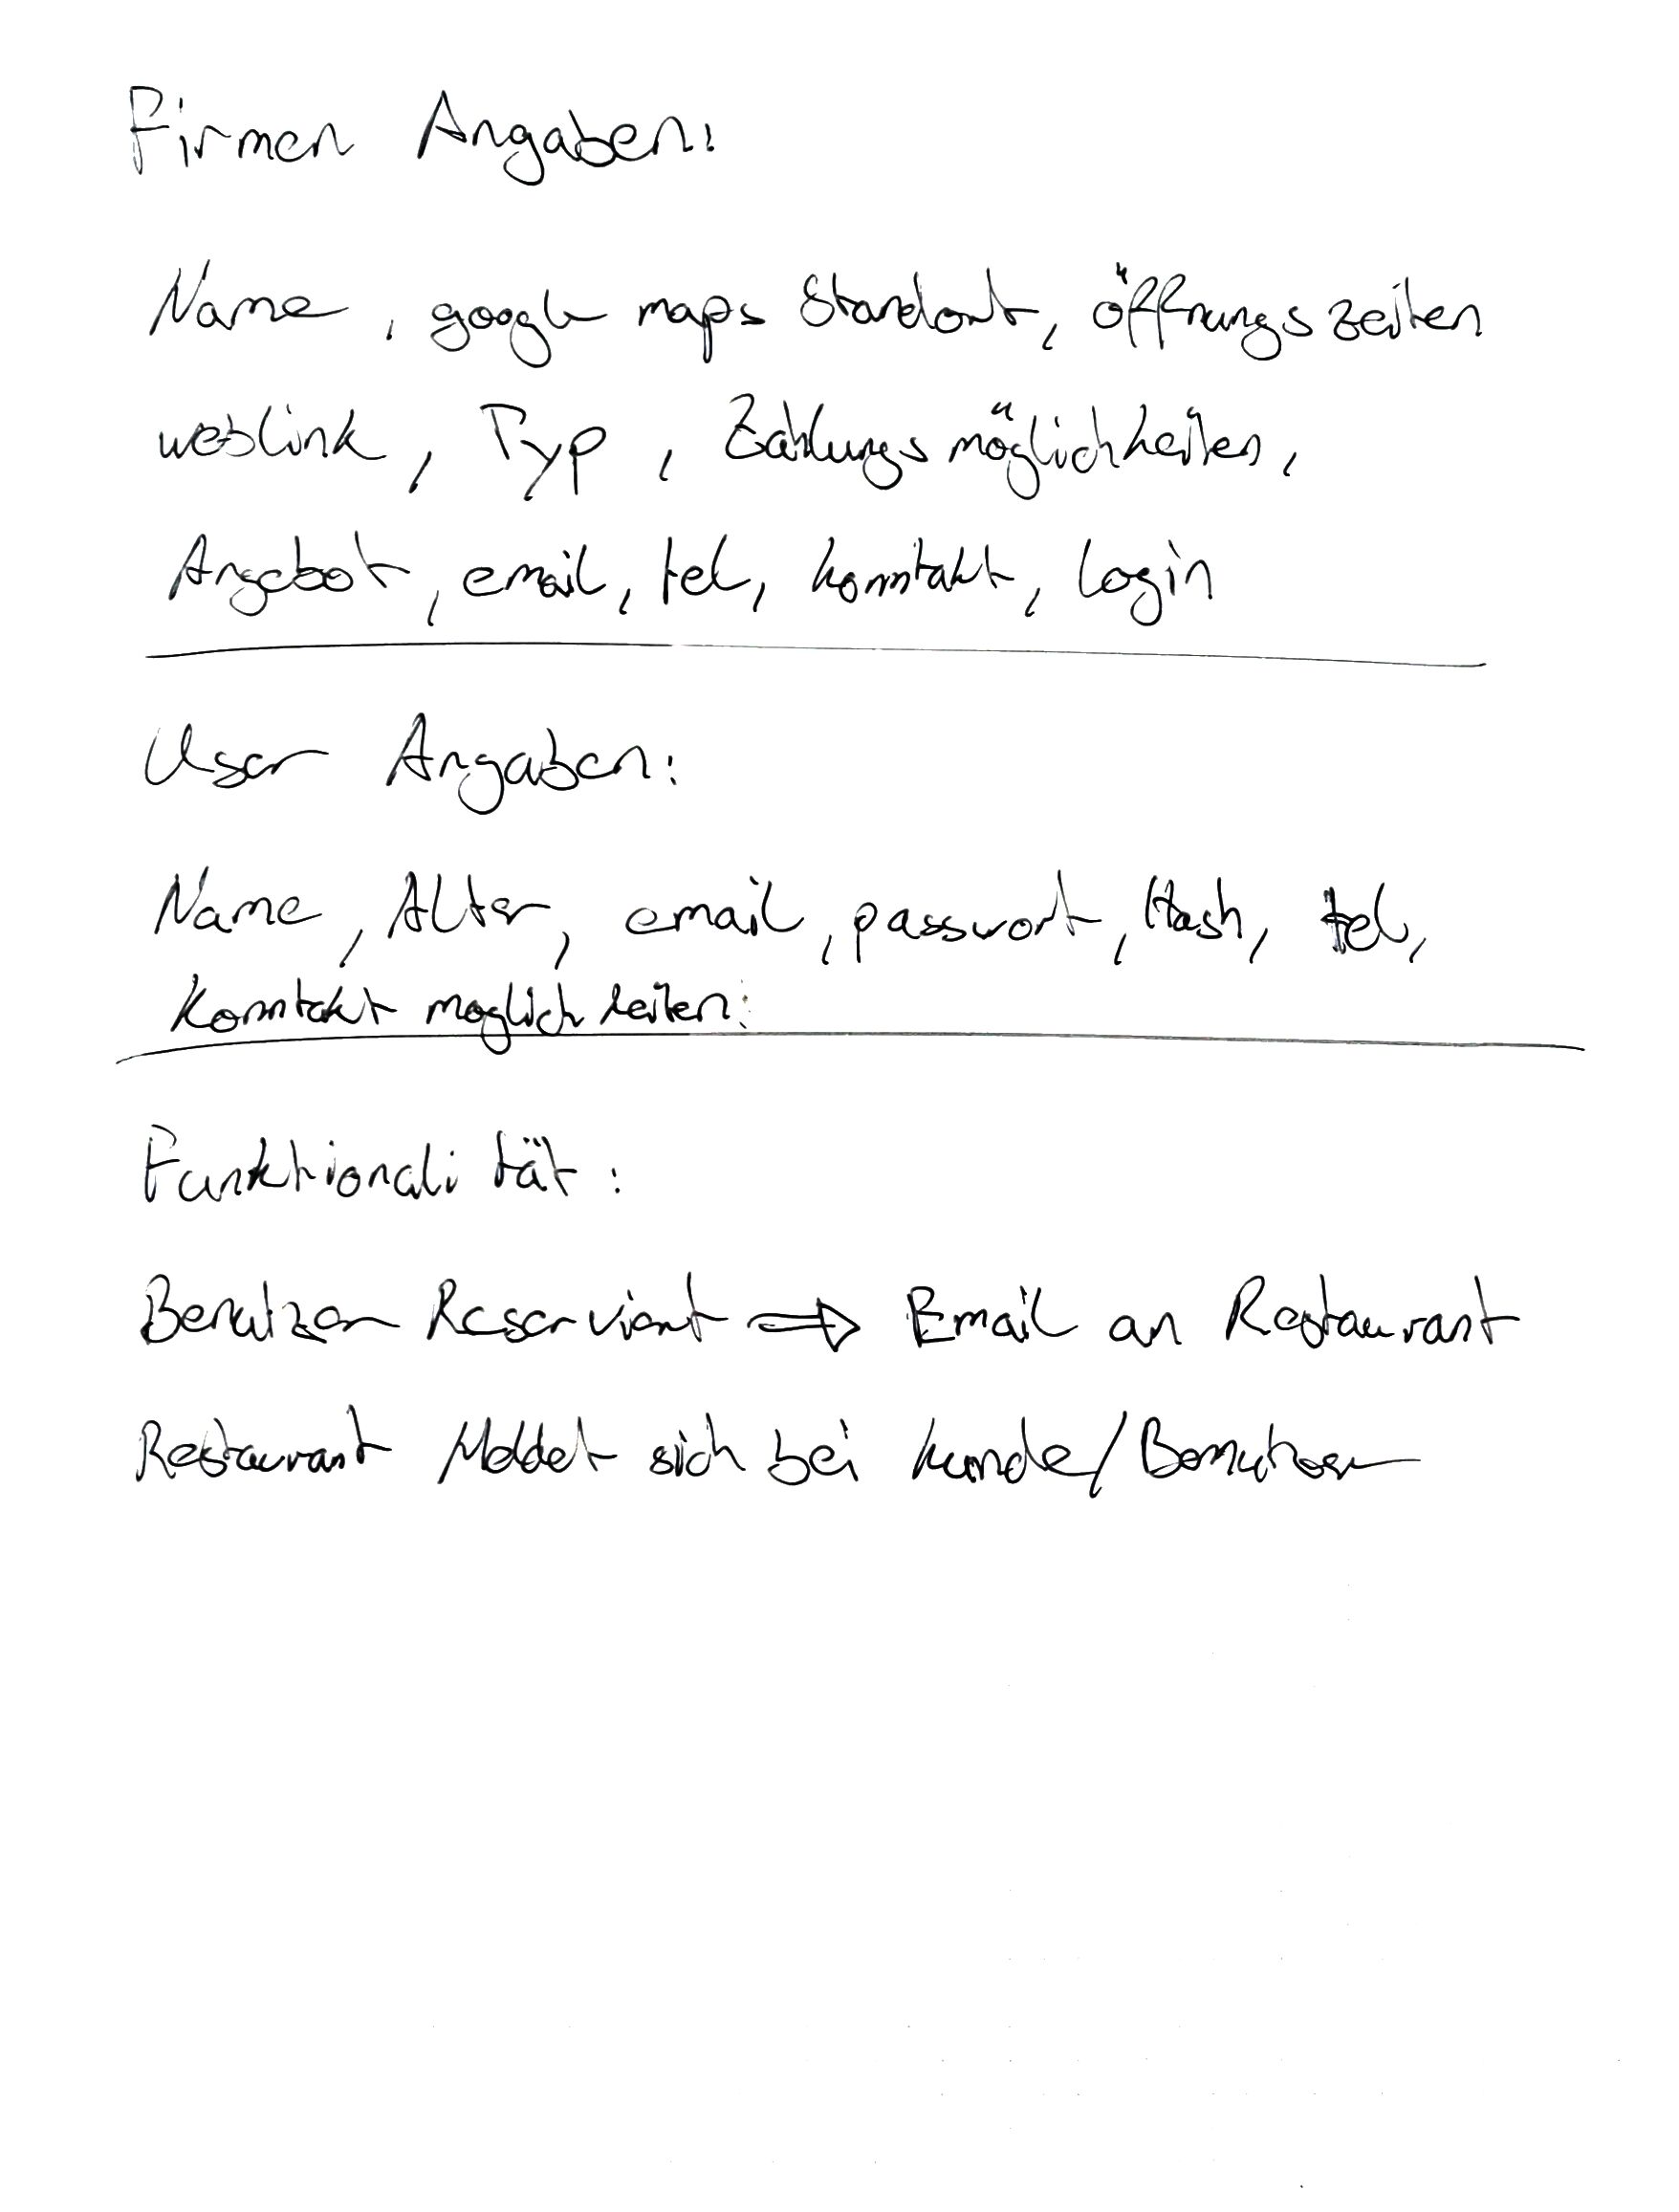 Firmen Angaben:
Name, google maps Standort, öffnungszeiten
weblink, Typ, Zahlungsmöglichkeiten,
Angebot, email, tel, konntakt, Login
User Angaben:
Name, Alter, email, passwort, Hash, tel,
Konntakt moglichkeiten:
Funktionalität:
Benutzer Reserviert ⇒ Email an Restaurant
Restaurant Meldet sich bei kunde/Bennutzer